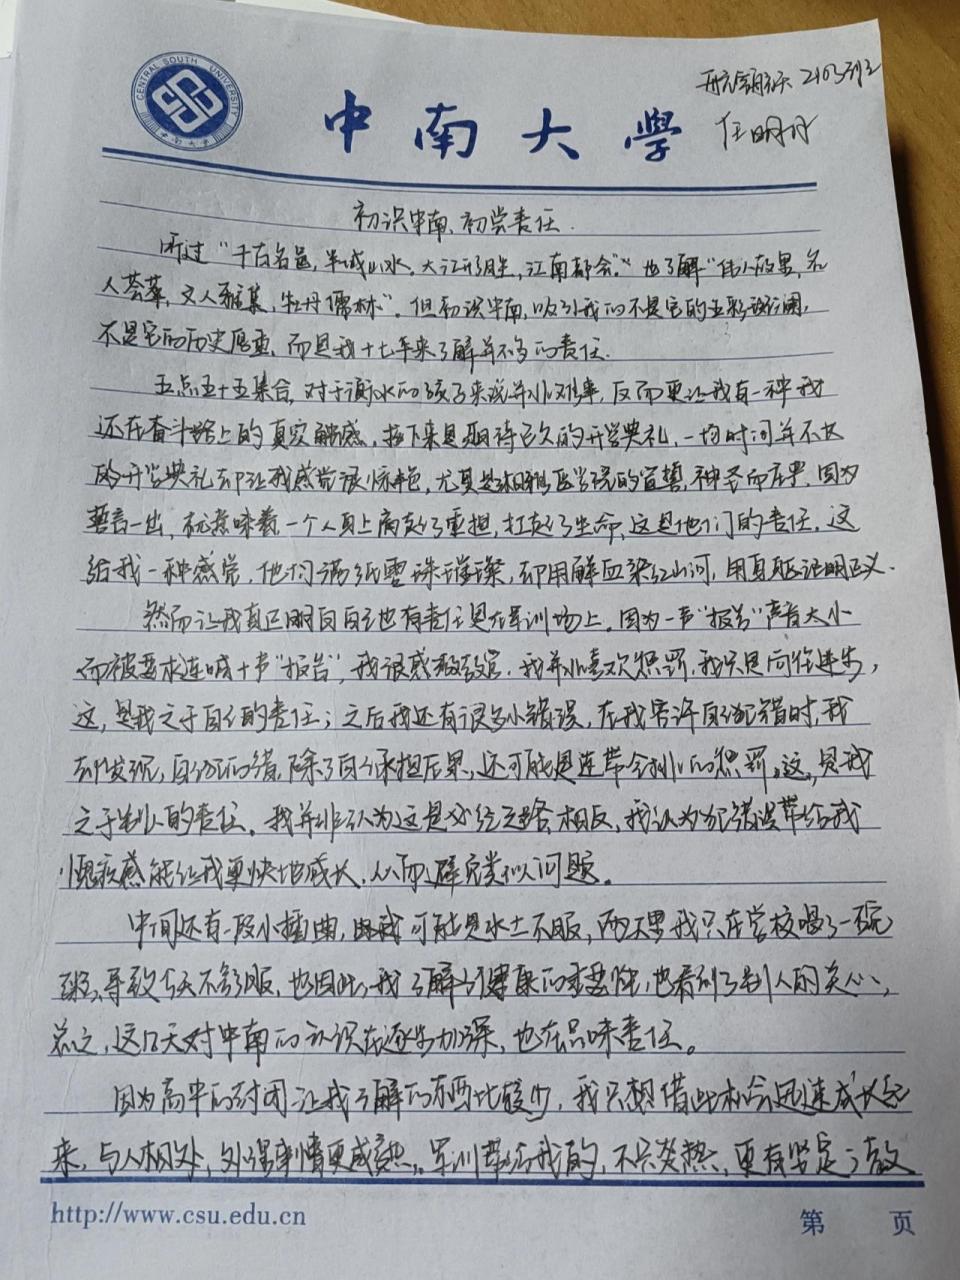 CENTRAL SOUTH UNIVERSITY
中南大学
中南大學
任明丹
初识中南、初尝责任.
听过“千古名邑,半城山水,大江形胜,江南都会。”也了解“伟人故里,名
人荟萃,文人雅集,牡丹儒林”。但初识中南,吸引我的不是它的五彩斑斓,
不是它的历史厚重,而是我十七年来了解并不多的责任.
五点五十五集合,对于衡水的孩子来说并非难事,反而更让我有一种我
还在奋斗路上的真实触感,接下来是期待已久的开学典礼,一场时间并不长
的开学典礼却让我感觉很惊艳,尤其是湘雅医学院的宣誓,神圣而庄严,因为
誓言一出,就意味着一个人肩上扛起了重担,扛起了生命,这是他们的责任.这
给我一种感觉,他们 璀璨,却用解血染红山河,用真 证明正义.
然而让我真正明白自己也有责任是在军训场上.因为一声“报告”声音大小
而被要求连喊十声“报告”,我很感激教官,我并非喜欢惩罚,我只是向往进步,
这,是我之于自己的责任;之后我还有很多小错误,在我容许自己犯错时,我
却发现,自己犯的错,除了自己承担后果,还可能是连带全排的惩罚。这,是我
之于别人的责任。我并非认为这是必经之路,相反,我认为犯错误带给我
愧疚感能让我更快地成长,从而避免类似问题。
中间还有一段小插曲,我可能是水土不服,两天里我只在学校喝了一碗
粥,导致5天不舒服,也因此,我了解了健康的重要性,也看到了别人的关心,
总之,这12天对中南的认识在逐步加深,也在品味责任。
因为高中的封闭让我了解的东西比较少,我只想借此机会迅速成长起
来,与人相处,处理事情更成熟。军训带给我的,不只炎热,更有坚定;教
http://www.csu.edu.cn
第 页